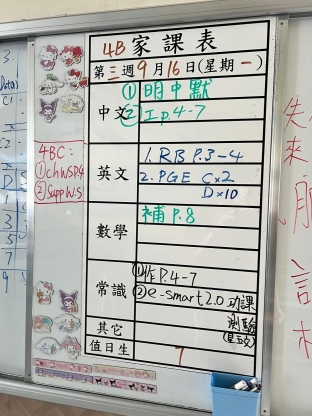 4B 家課表
第三週 9月16日(星期一)
中文
① 明中默
② 工p.4-7
英文
1. RB P.3-4
2. PGE C×2
D×10
數學
補 P.8
常識
① 作P.4-7
② e-smart 2.0 功課
測驗
(星五交)
其它
值日生
7
4BC:
① ch WS P.4
② Supp W.S